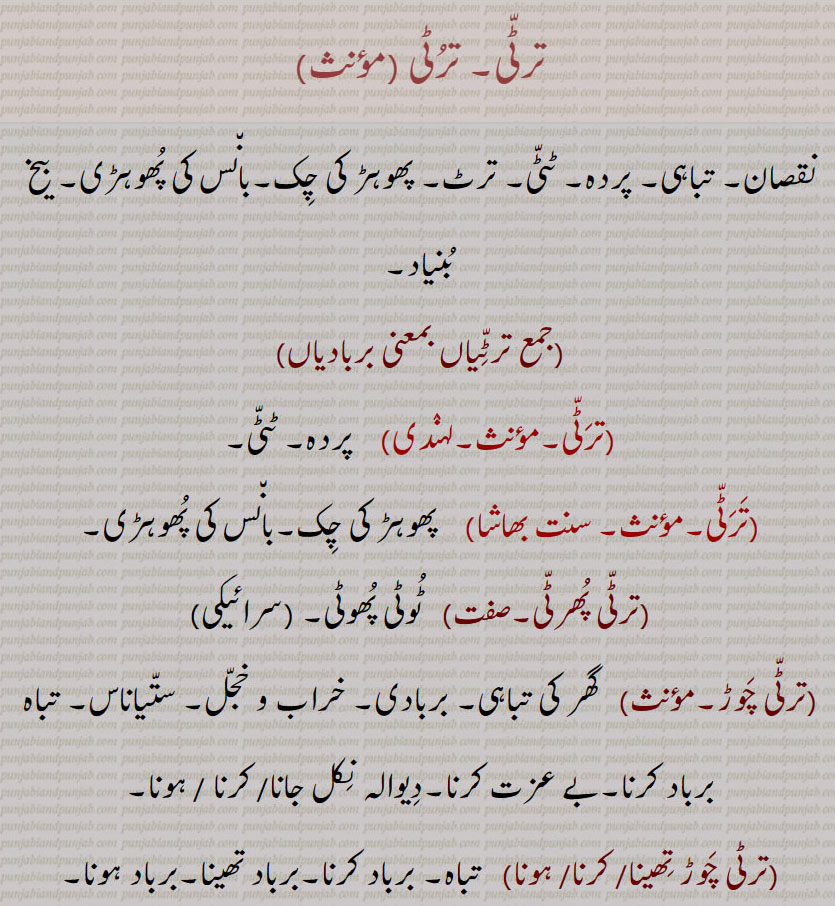 ترٹّی۔ ترُٹی (مؤنث)
نقصان۔ تباہی۔ پردہ۔ ٹٹّی۔ ترٹ۔ پھوہڑ کی چِک۔بانّس کی پُھوہڑی۔ بیخ
بُنیاد۔
(جمع ترٹِّیاں بمعنی بربادیاں)
(ترَٹّی۔مؤنث۔لہندی) پردہ۔ ٹٹّی۔
(تَرَٹّی۔مؤنث۔ سنت بھاشا) پھوہڑ کی چِک۔بانّس کی پُھوہڑی۔
(ترٹّی پُھرٹّی۔صفت) ٹُوٹی پُھوٹی۔ (سرائیکی)
(ترٹّی چَوڑ۔مؤنث) گھر کی تباہی۔ بربادی۔ خراب و خجّل۔ ستّیاناس۔ تباہ
برباد کرنا۔بے عزت کرنا۔دِیوالہ نِکل جانا/ کرنا / ہونا۔
(ترٹی چَوڑ تِھینا/ کرنا/ ہونا) تباہ۔ برباد کرنا۔برباد تھینا۔برباد ہونا۔